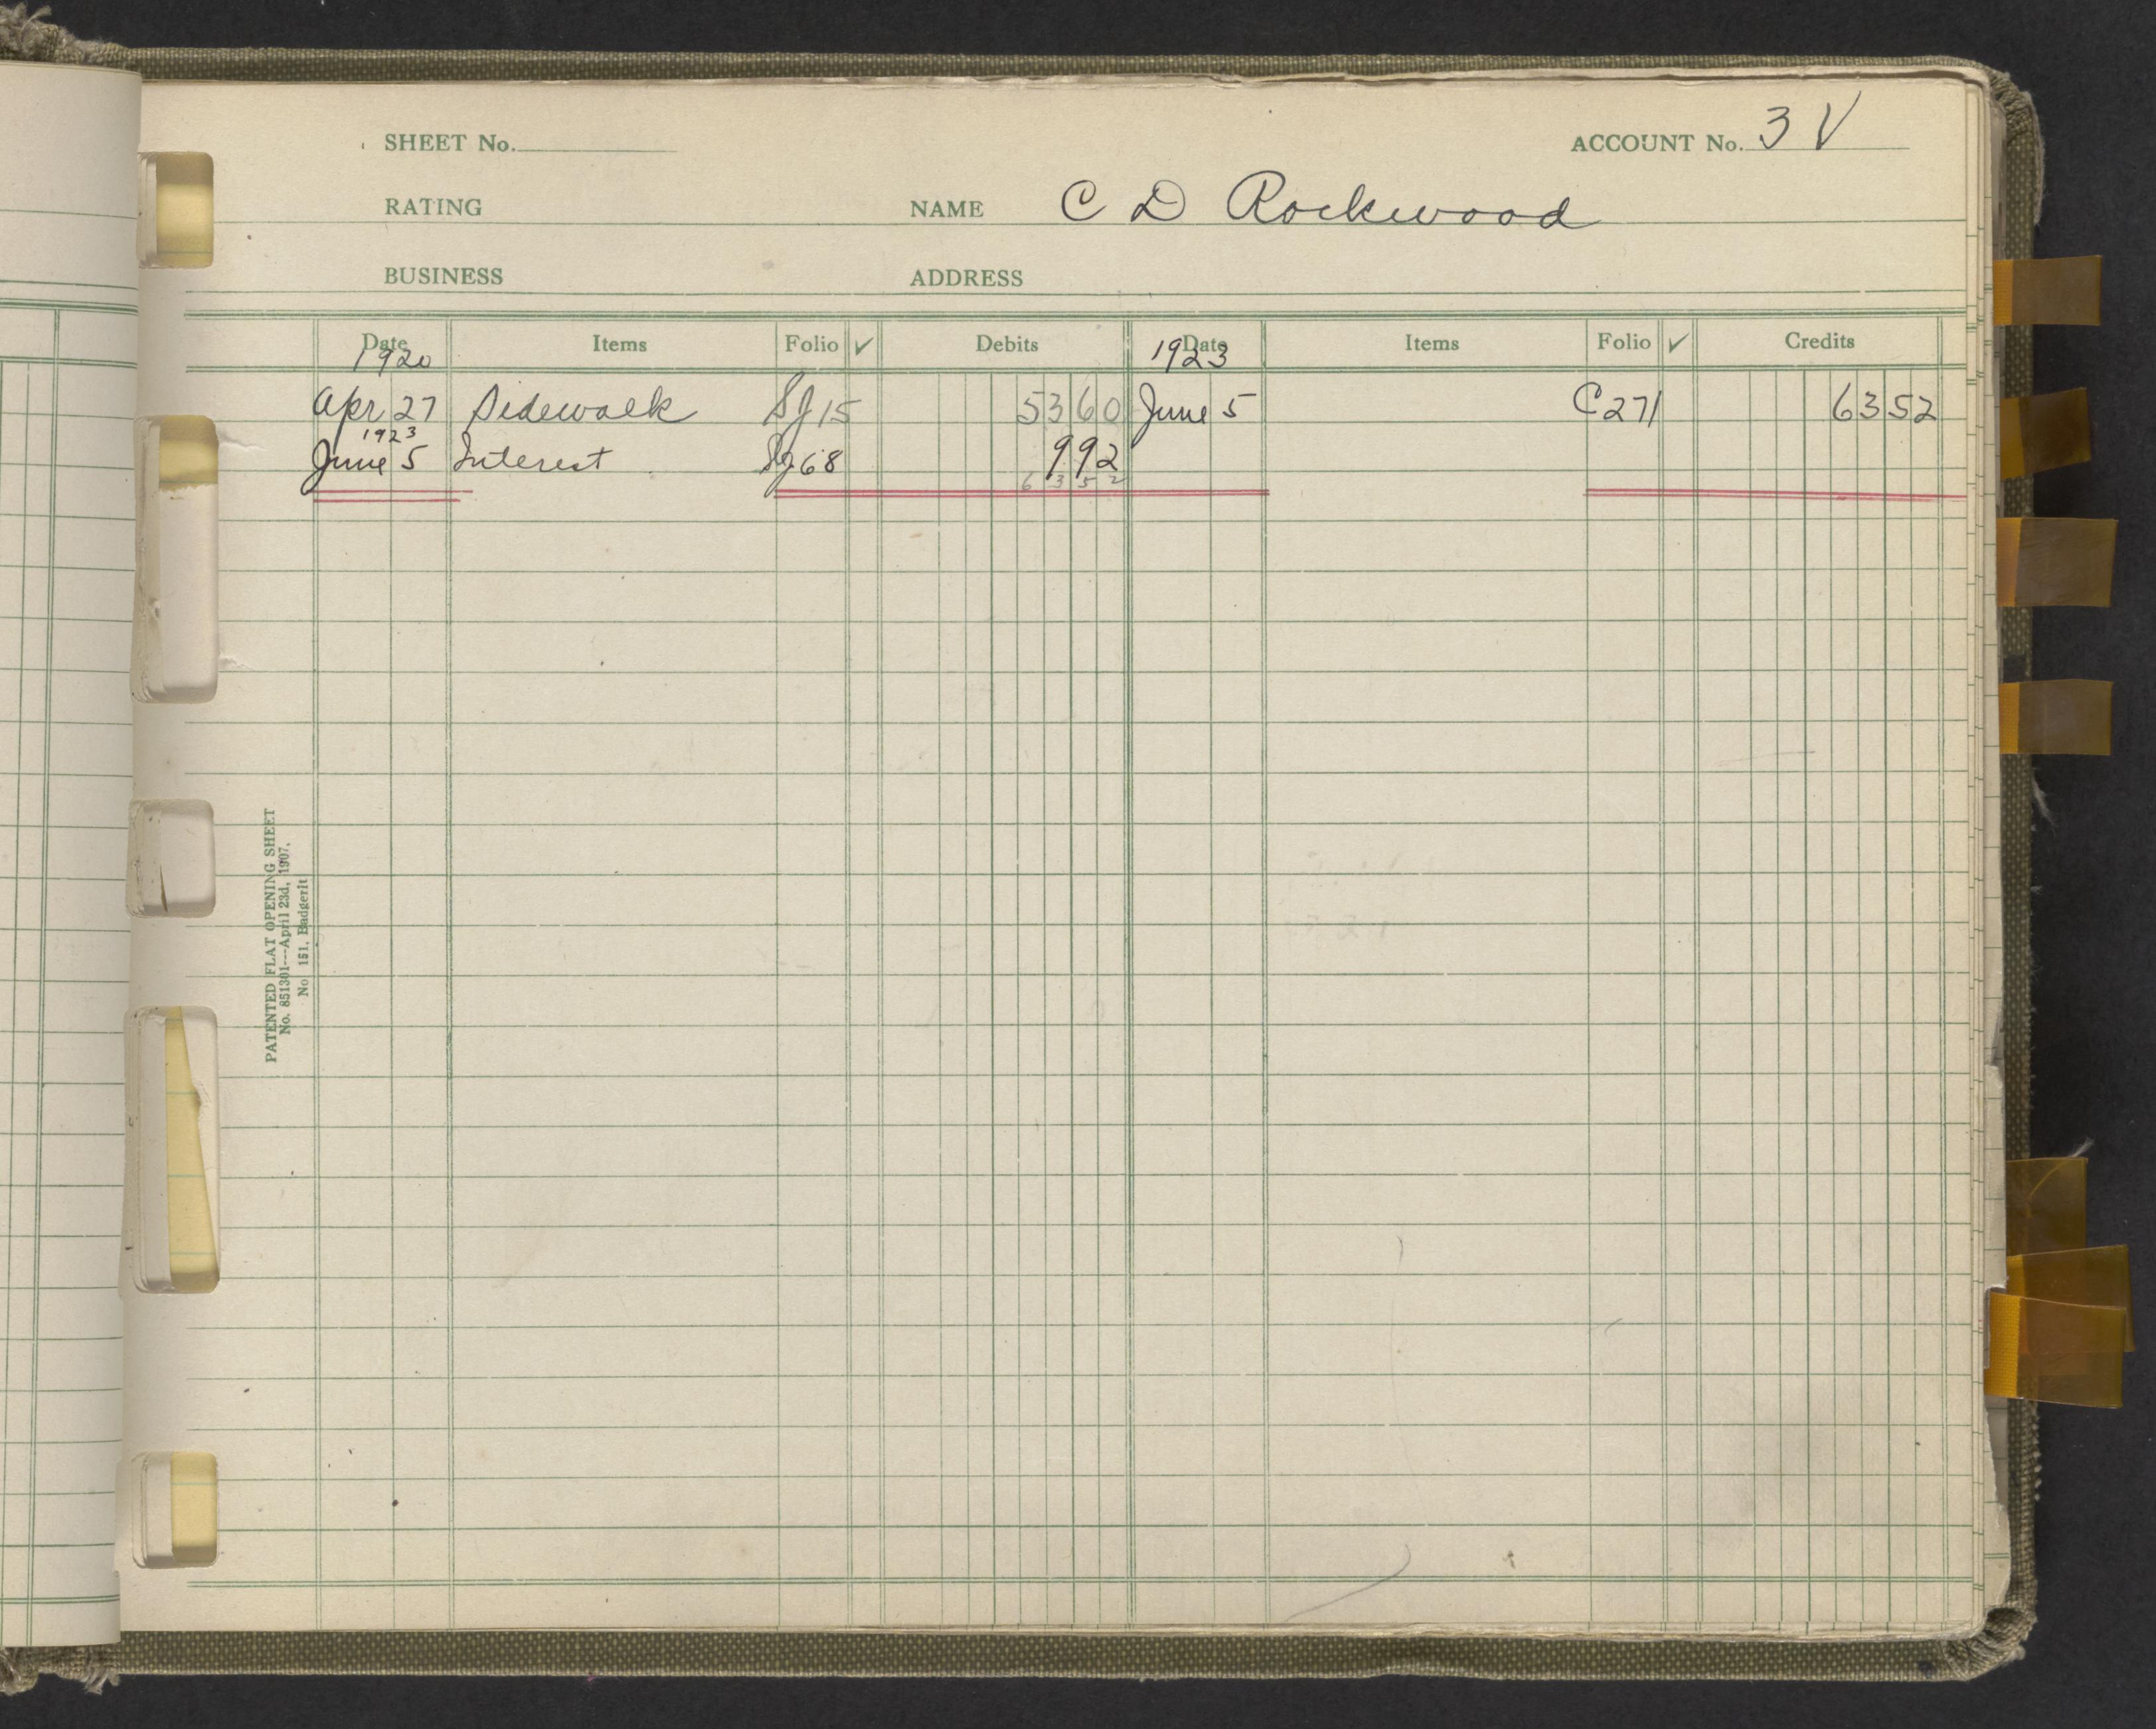 SHEET No. ACCOUNT No. 3 V
RATING NAME C D Rockwood
BUSINESS ADDRESS
Date Items Folio ✓ Debits Date Items Folio ✓ Credits
1920 1923
Apr 27 Sidewalk SJ 15 53 60 June 5 C 271 63 52
1923
June 5 Interest SJ 68 9 92
63 52
PATENTED FLAT OPENING SHEET
No. 851301---April 23d, 1907.
No 151. Badgerlt